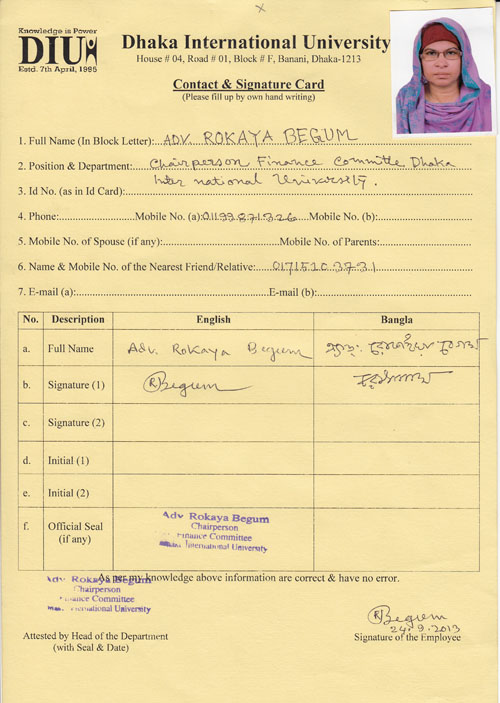 Knowledge is Power
DIU
Estd. 7th April, 1995
Dhaka International University
House # 04, Road # 01, Block # F, Banani, Dhaka-1213
Contact & Signature Card
(Please fill up by own hand writing)
1. Full Name (In Block Letter): ADV. ROKAYA BEGUM
2. Position & Department: Chairperson Finance Committe Dhaka
International University.
3. Id No. (as in Id Card):
4. Phone: Mobile No. (a): 01199871326 Mobile No. (b):
5. Mobile No. of Spouse (if any): Mobile No. of Parents:
6. Name & Mobile No. of the Nearest Friend/Relative: 01715103731
7. E-mail (a): E-mail (b):
No. Description English Bangla
a. Full Name Adv. Rokaya Begum
b. Signature (1) Begum
c. Signature (2)
d. Initial (1)
e. Initial (2)
f. Official Seal (if any)
Adv Rokaya Begum
Chairperson
Finance Committee
International University
As per my knowledge above information are correct & have no error.
Adv Rokaya Begum
Chairperson
Finance Committee
International University
Begum
24.9.2013
Attested by Head of the Department
(with Seal & Date)
Signature of the Employee